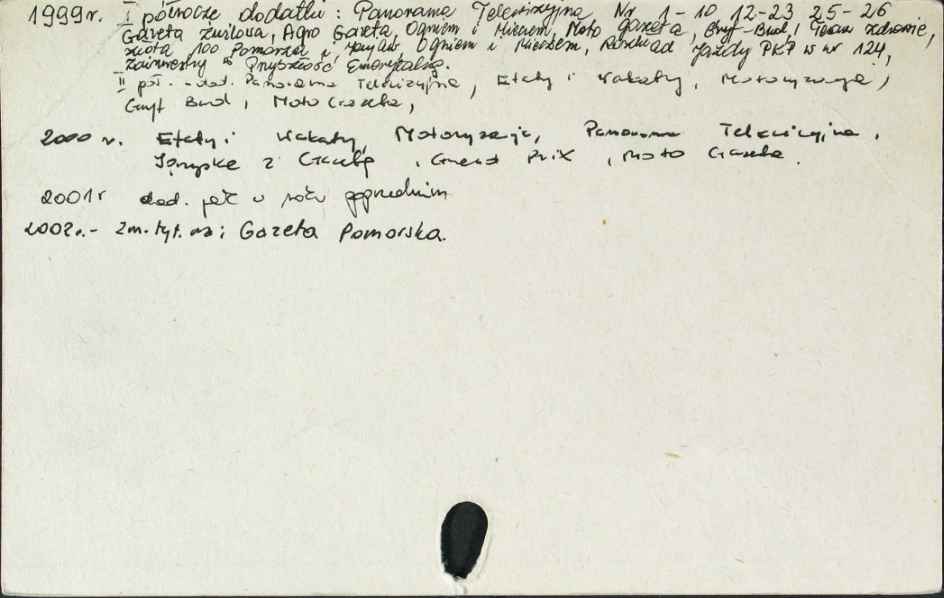 1999 r. I półrocze dodatki: Panorama Telewizyjna Nr 1-10 12-23 25-26
Gazeta Żużlowa, Agro Gazeta, Ogniem i Mieczem, Moto gazeta, Gryf-Bud, Teraz zdrowie,
złota 100 Pomorza i Ogniem i Mieczem, Rozkład jazdy PKP w nr 124,
Przyszłość Emerytalną.
II pół. - dod. Panorama Telewizyjna, Etaty i Wakaty, Motoryzacja,
Gryf Bud, Moto Gazeta,
2000 r. Etaty i Wakaty, Motoryzacja, Panorama Telewizyjna,
z Gazetą, Grand Prix, Moto Gazeta.
2001 r dod. jak w roku poprzednim
2002 r. - zm. tyt. na: Gazeta Pomorska.